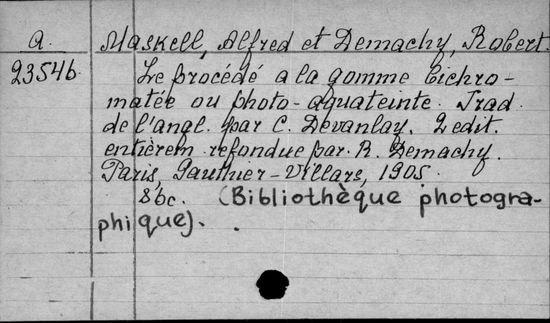 A. Maskell, Alfred et Demachy, Robert.
23546 Le procédé a la gomme bichro-
matée ou photo-aquateinte. Trad.
de l'angl. par C. Devanlay. 2 edit.
entièrem. refondue par R. Demachy.
Paris, Gauthier-Villars, 1905.
8bc. (Bibliothèque photogra-
phique).